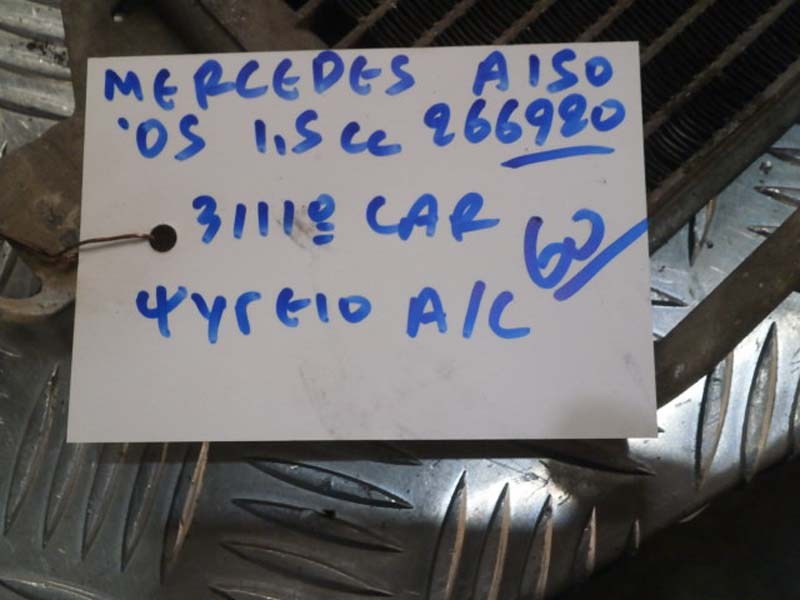 MERCEDES A150
'05 1,5 cc 266920
3111º CAR
60
ΨΥΓΕΙΟ A/C